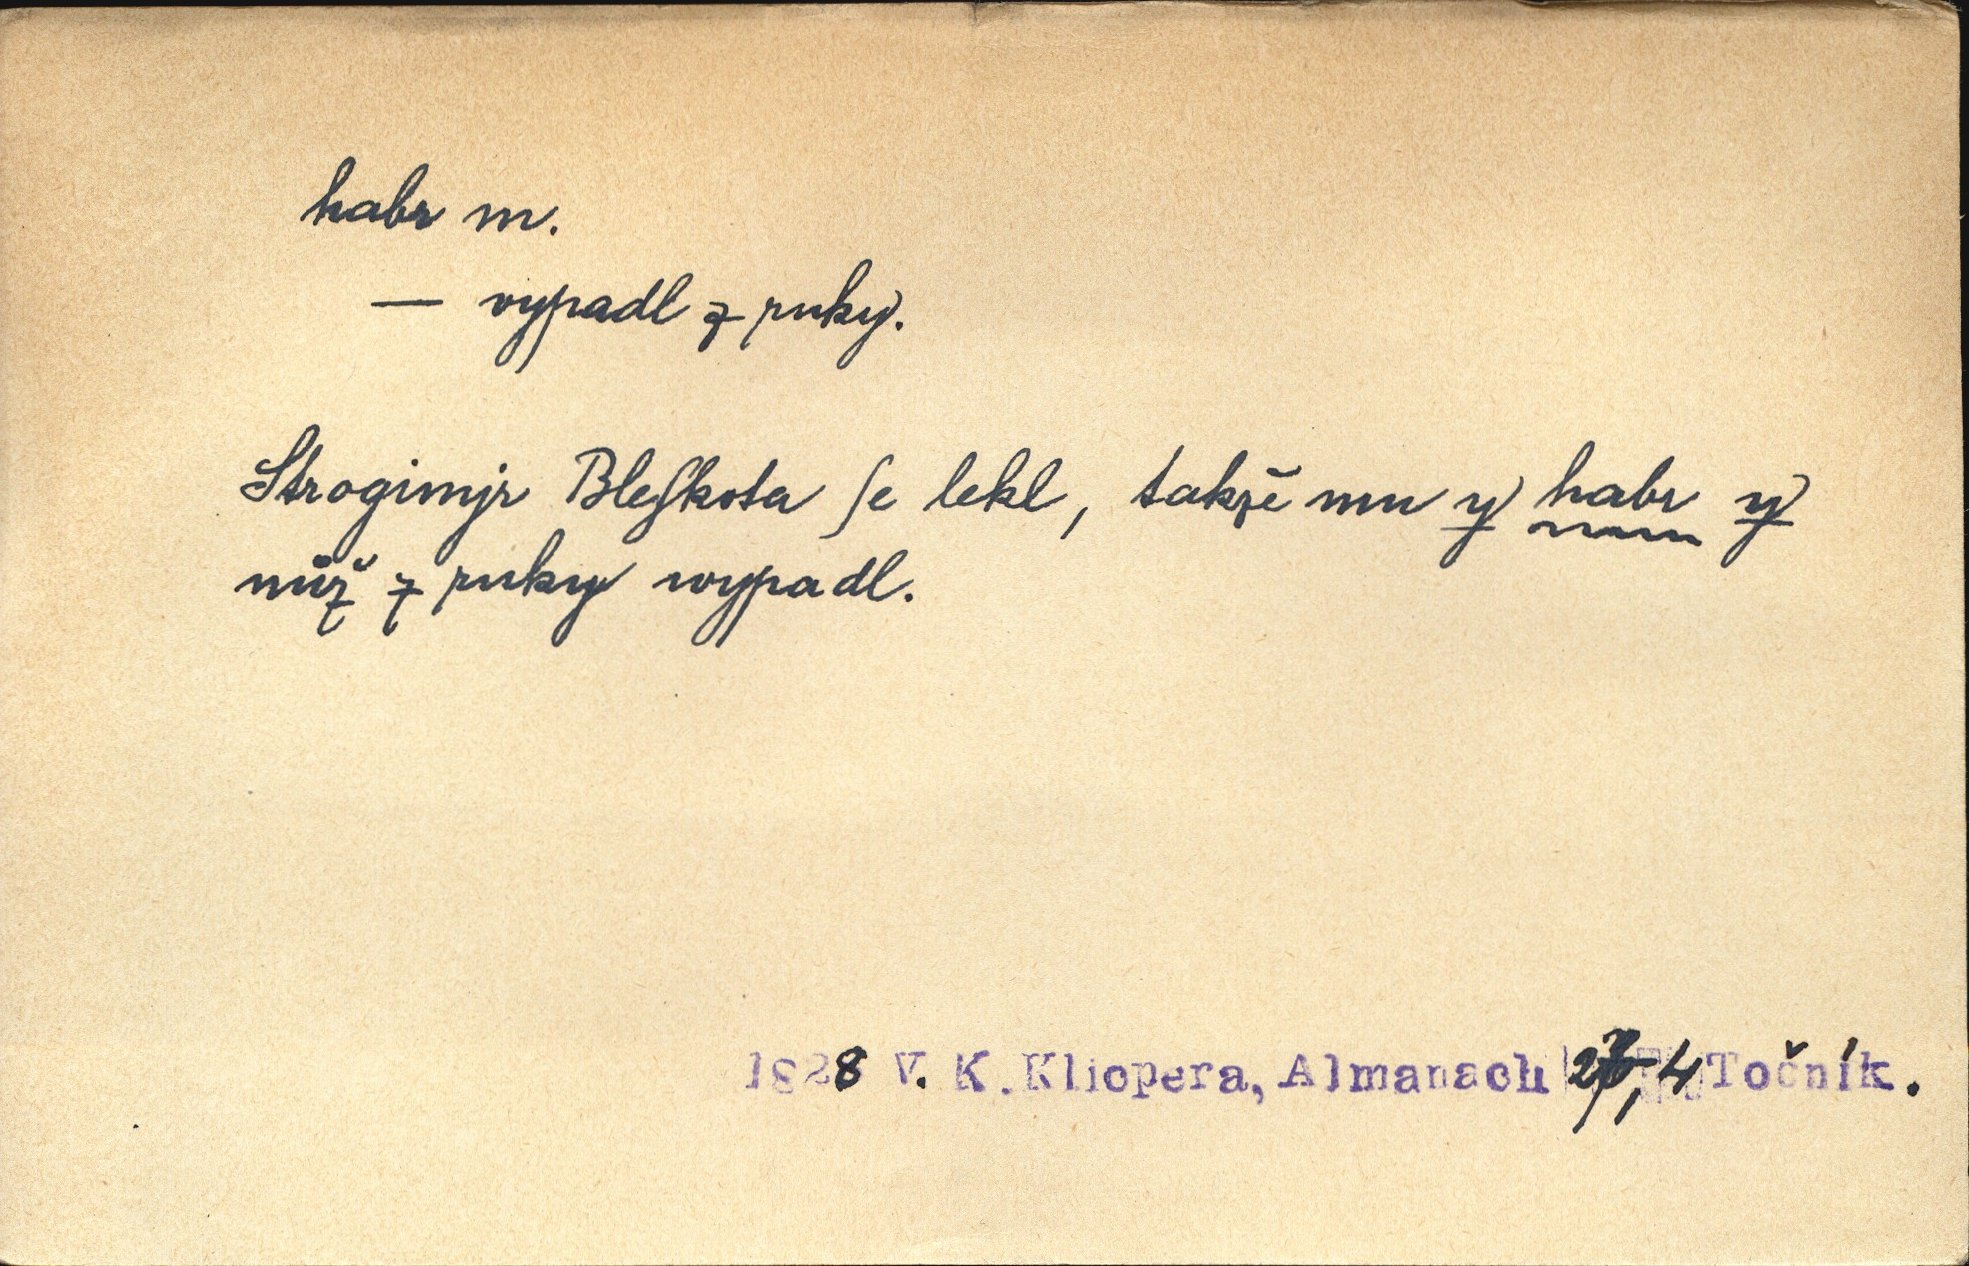 habr m.
— vypadl z ruky.
Strogimjr Bleſkota ſe lekl, takže mu y habr y
nůž z ruky wypadl.
1828 V. K. Kliopera, Almanach 4 Točník.